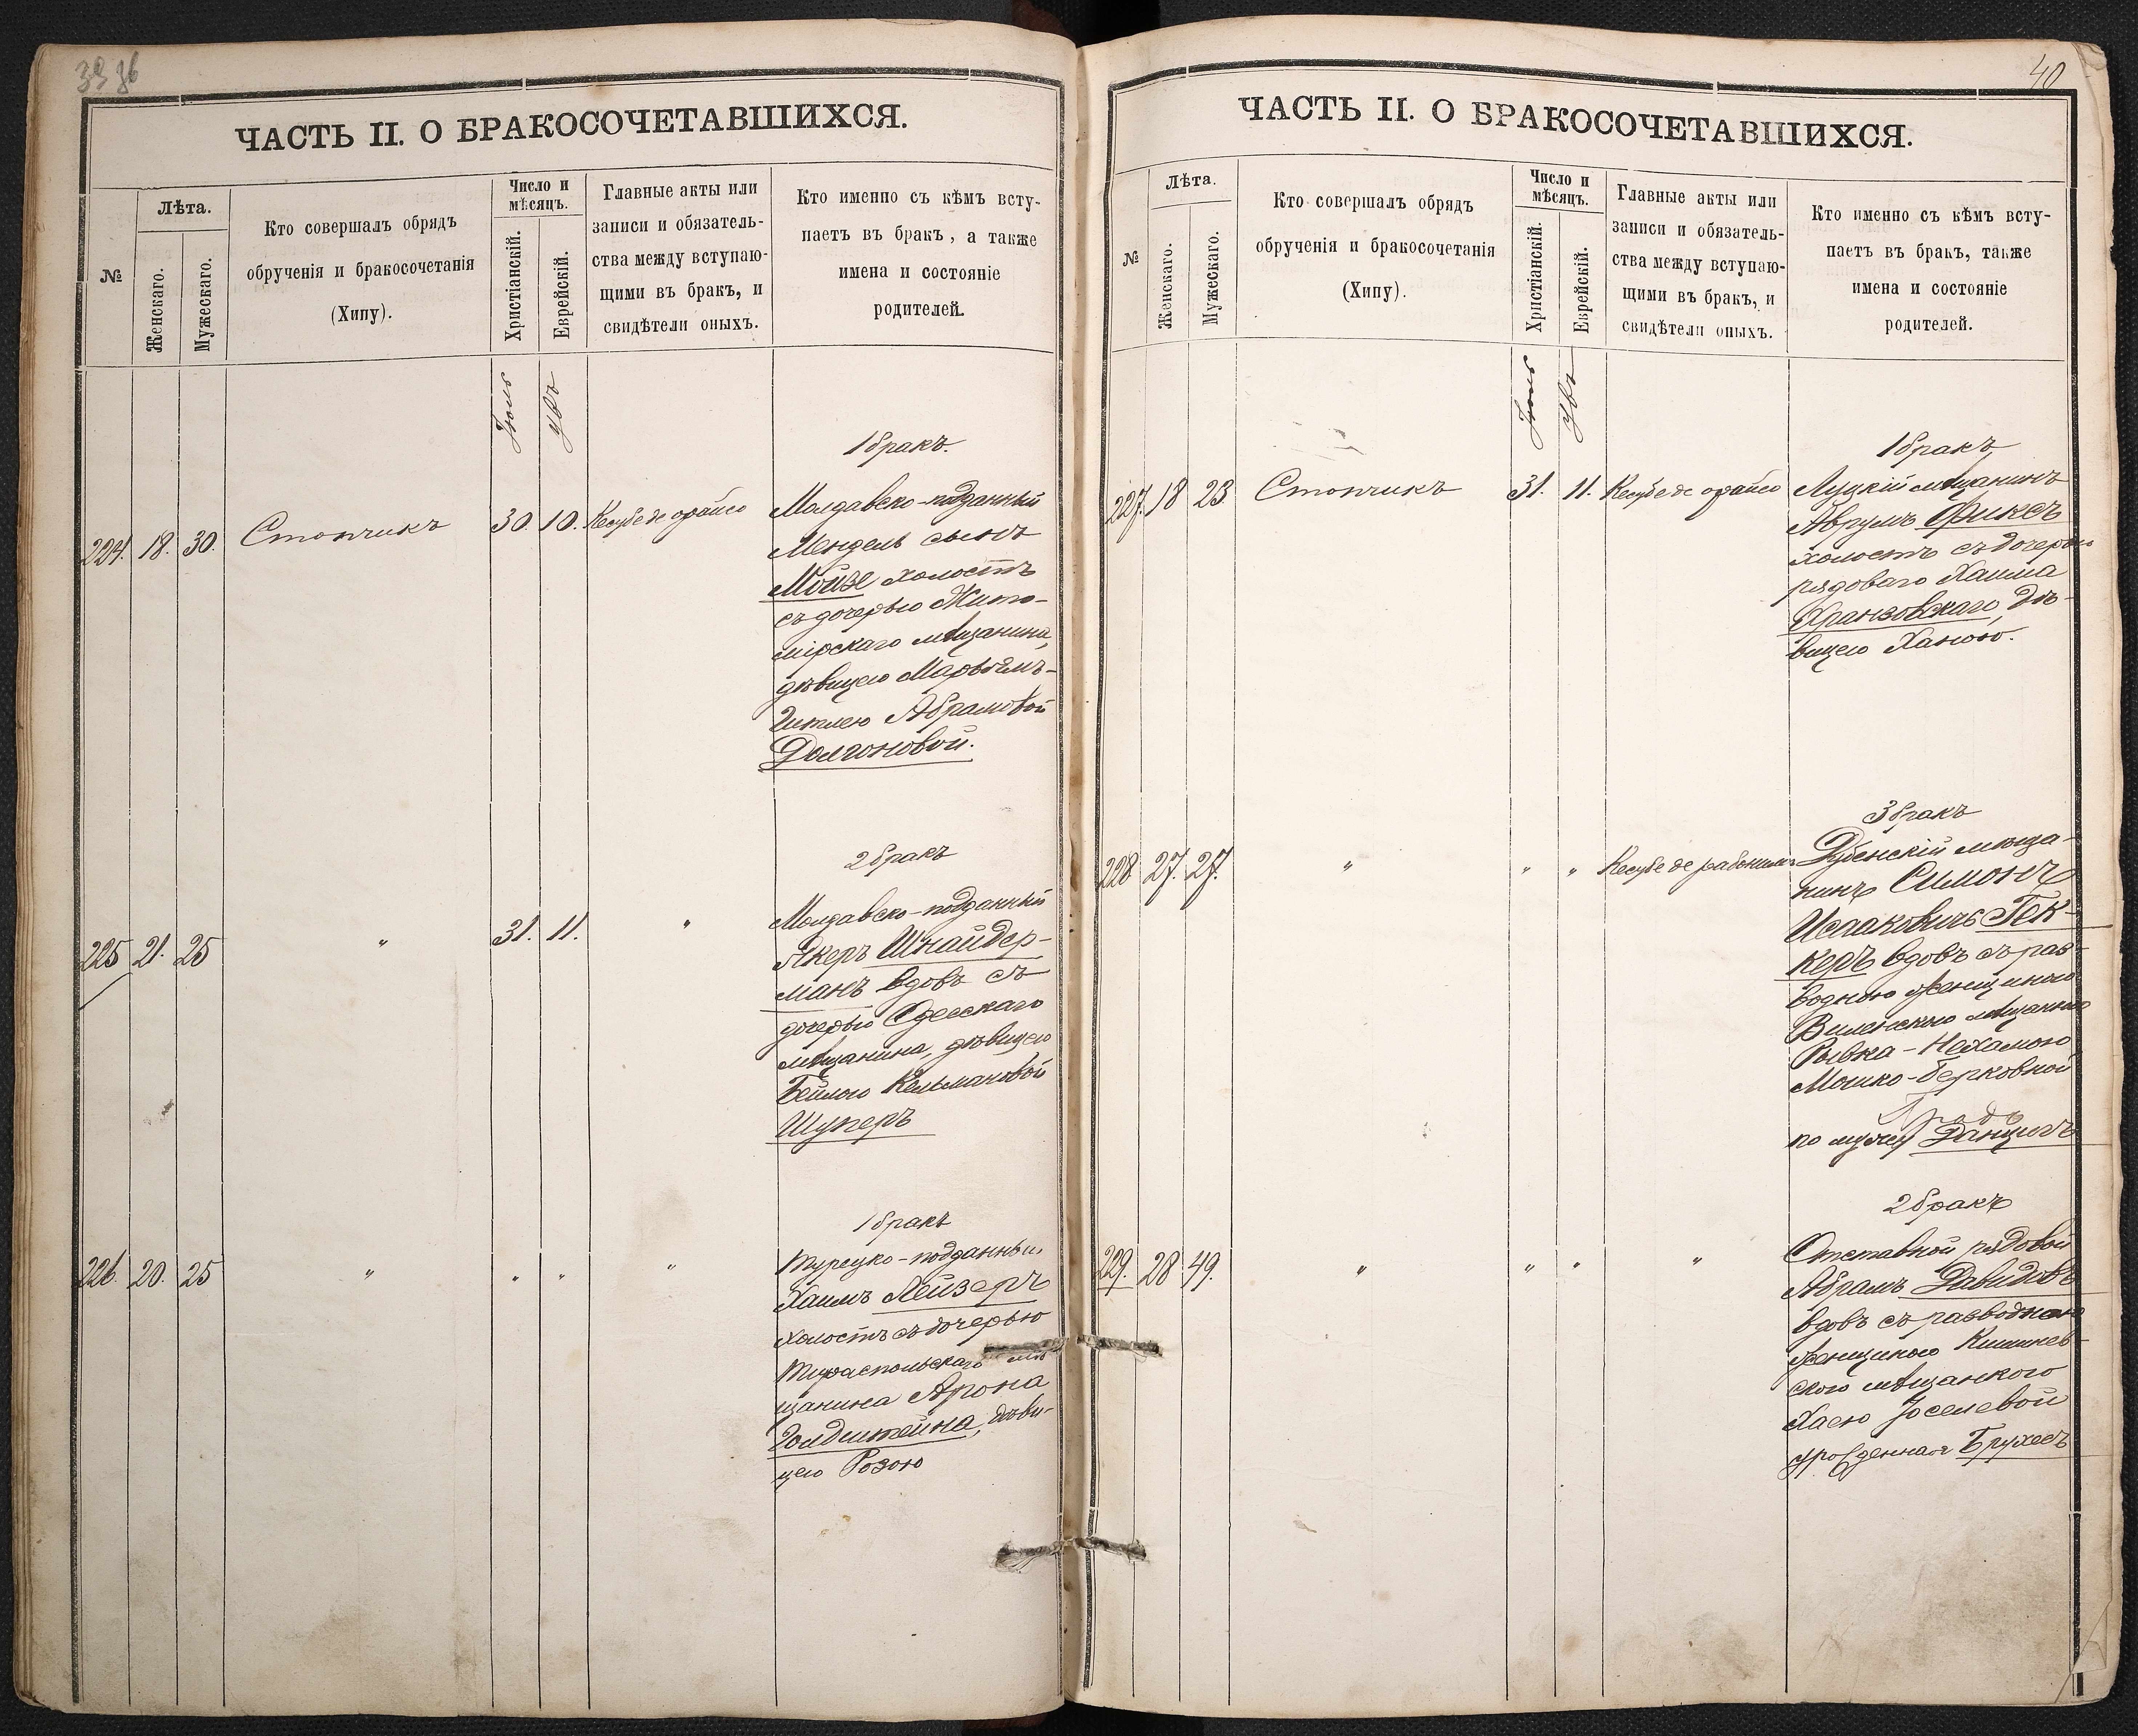 40
ЧАСТЬ II. О БРАКОСОЧЕТАВШИХСЯ.
№
Лѣта.
Женскаго.
Мужескаго.
Кто совершалъ обрядъ
обрученія и бракосочетанія
(Хипу).
Число и
мѣсяцъ.
Христіанскій.
Еврейскій.
Главные акты или
записи и обязатель-
ства между вступаю-
щими въ бракъ, и
свидѣтели оныхъ.
Кто именно съ кѣмъ всту-
паетъ въ бракъ, а также
имена и состояніе
родителей.
Іюль
1 бракъ.
224. 18. 30. Стопчикъ 30. 10.
Молдавско-подданный
Мендель сынъ
Мойзе холостъ
съ дочерью Жито-
мірскаго мѣщанина,
дѣвицею Марьямъ-
Гитлею Абрамовой
Долгоновой.
2 бракъ
225 21. 25 " 31. 11. "
Молдавско-подданный
Янкеръ Шнайдер-
манъ вдовъ съ
дочерью Одесскаго
мѣщанина, дѣвицею
Бейлою Кельмановой
Шуперъ
1 бракъ
226. 20. 25 " " " "
Турецко-подданный
Хаимъ Лейзеръ
холостъ съ дочерью
Тираспольскаго мѣ
щанина Арона
Гольдштейна, дѣви-
цею Розою
ЧАСТЬ II. О БРАКОСОЧЕТАВШИХСЯ.
№
Лѣта.
Женскаго.
Мужескаго.
Кто совершалъ обрядъ
обрученія и бракосочетанія
(Хипу).
Число и
мѣсяцъ.
Христіанскій.
Еврейскій.
Главные акты или
записи и обязатель-
ства между вступаю-
щими въ бракъ, и
свидѣтели оныхъ.
Кто именно съ кѣмъ всту-
паетъ въ бракъ, также
имена и состояніе
родителей.
Іюль
1 бракъ
227. 18 23 Стопчикъ 31. 11.
Луцкій мѣщанинъ
Аврумъ Фиксъ
холостъ съ дочерью
рядоваго Хаима
Хранзовскаго, дѣ-
вицею Ханою.
3 бракъ
228 27. 27. " " "
Дубенскій мѣща-
нинъ Симонъ
Исааковичъ Гек-
керъ вдовъ съ раз-
водною женщиною
Виленскою мѣщанкою
Рывка-Нехамою
Мошко-Берковной
по мужу Данцигъ
2 бракъ
229. 28 49. " " " "
Отставной рядовой
Абрамъ Давидовъ
вдовъ съ разводною
женщиною Кишинев-
ского мѣщанкого
Хаею Іоселевой
урожденная Брухесъ